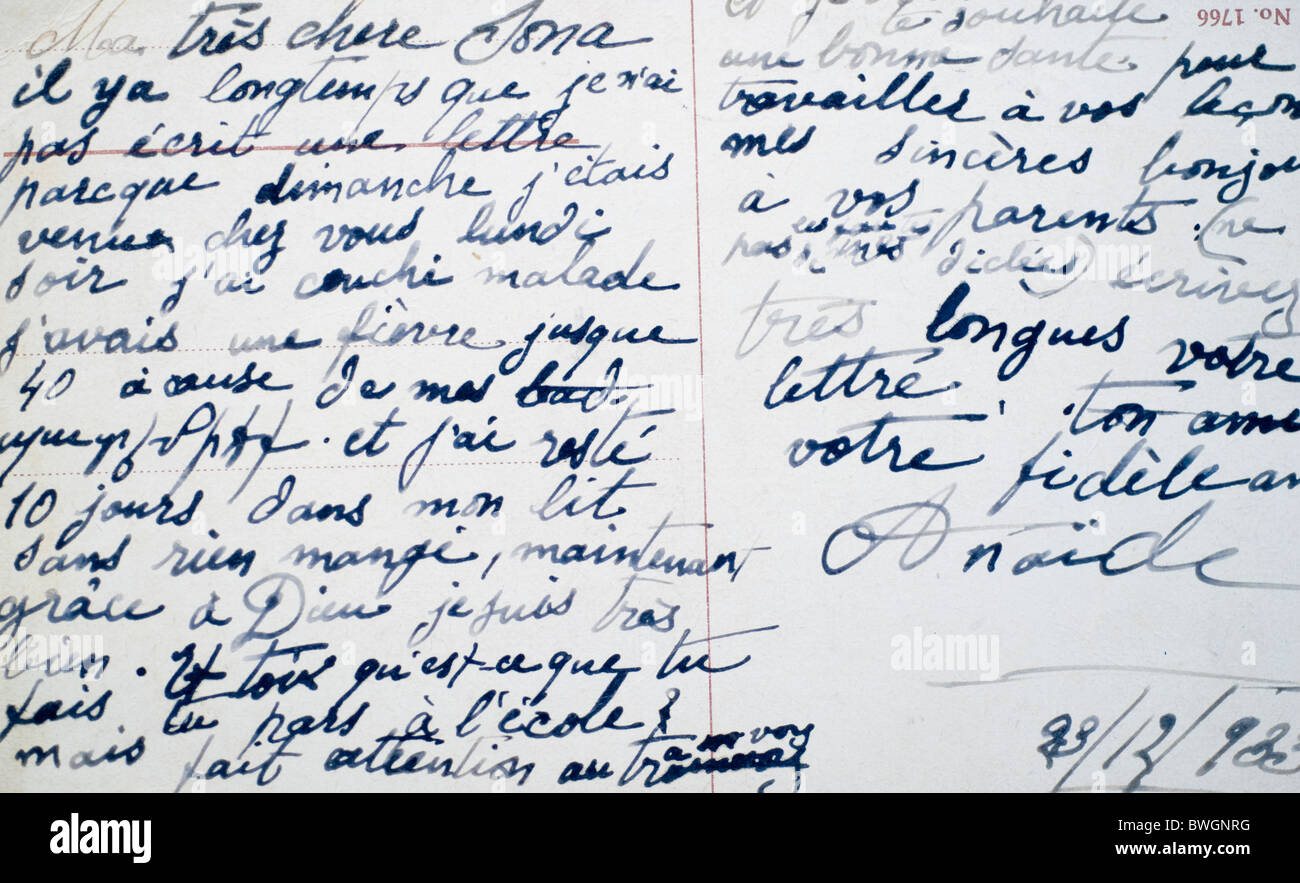 Ma très chere Sona
il ya longtemps que je n'ai
pas écrit une lettre
parcque dimanche j'étais
venue chez vous lundi
soir j'ai couché malade
j'avais une fièvre jusque
40 à cause de mes
et j'ai resté
10 jours dans mon lit
sans rien mangé, maintenant
grâce à Dieu je suis très
bien. Et toix qu'est-ce que tu
fais tu pars à l'école?
mais fait attention au
No. 1766
te souhaite
une bonne santé pour
travailler à vos leçon
mes sincères bonjou
à vos parents. (ne
pas dictées) écrivez
très longues votre
lettre. ton ame
votre fidèle am
Anaïde
/12/933
alamy
Image ID: BWGNRG
www.alamy.com